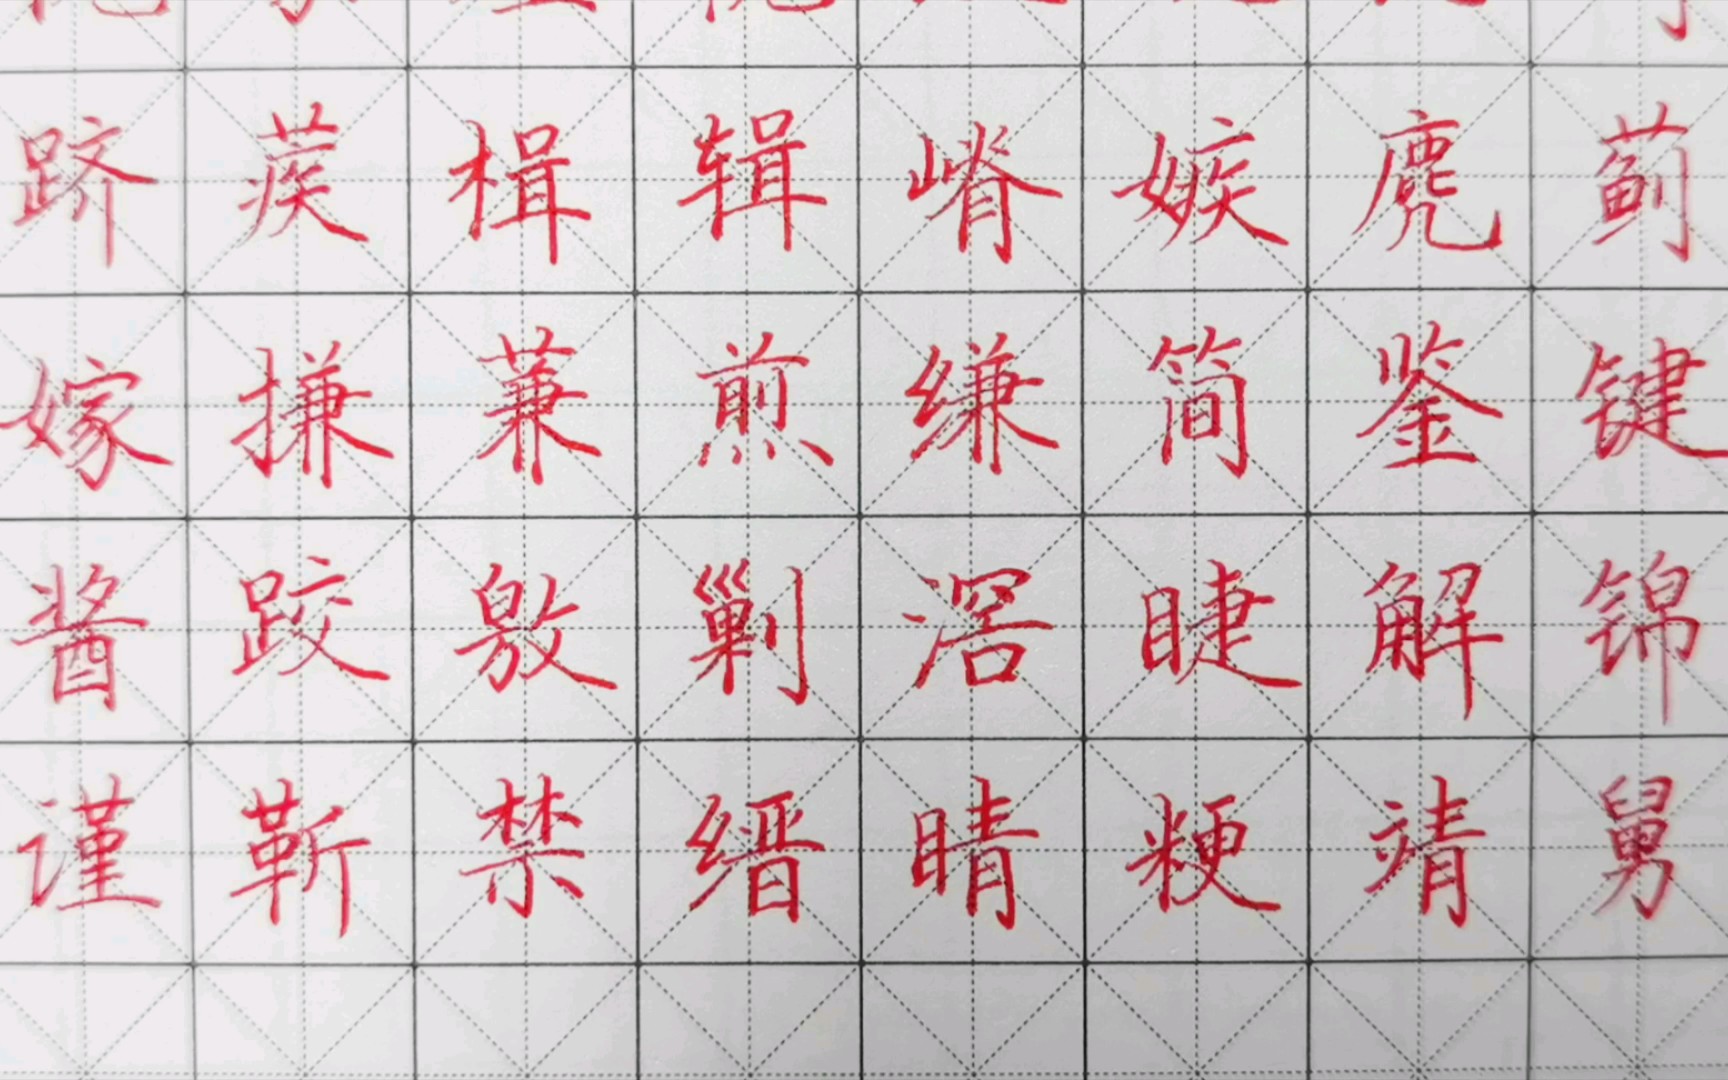 跻蒺楫辑嵴嫉麂蓟
嫁搛蒹煎缣简鉴键
酱跤敫剿滘睫解锦
谨靳禁缙睛粳靖舅